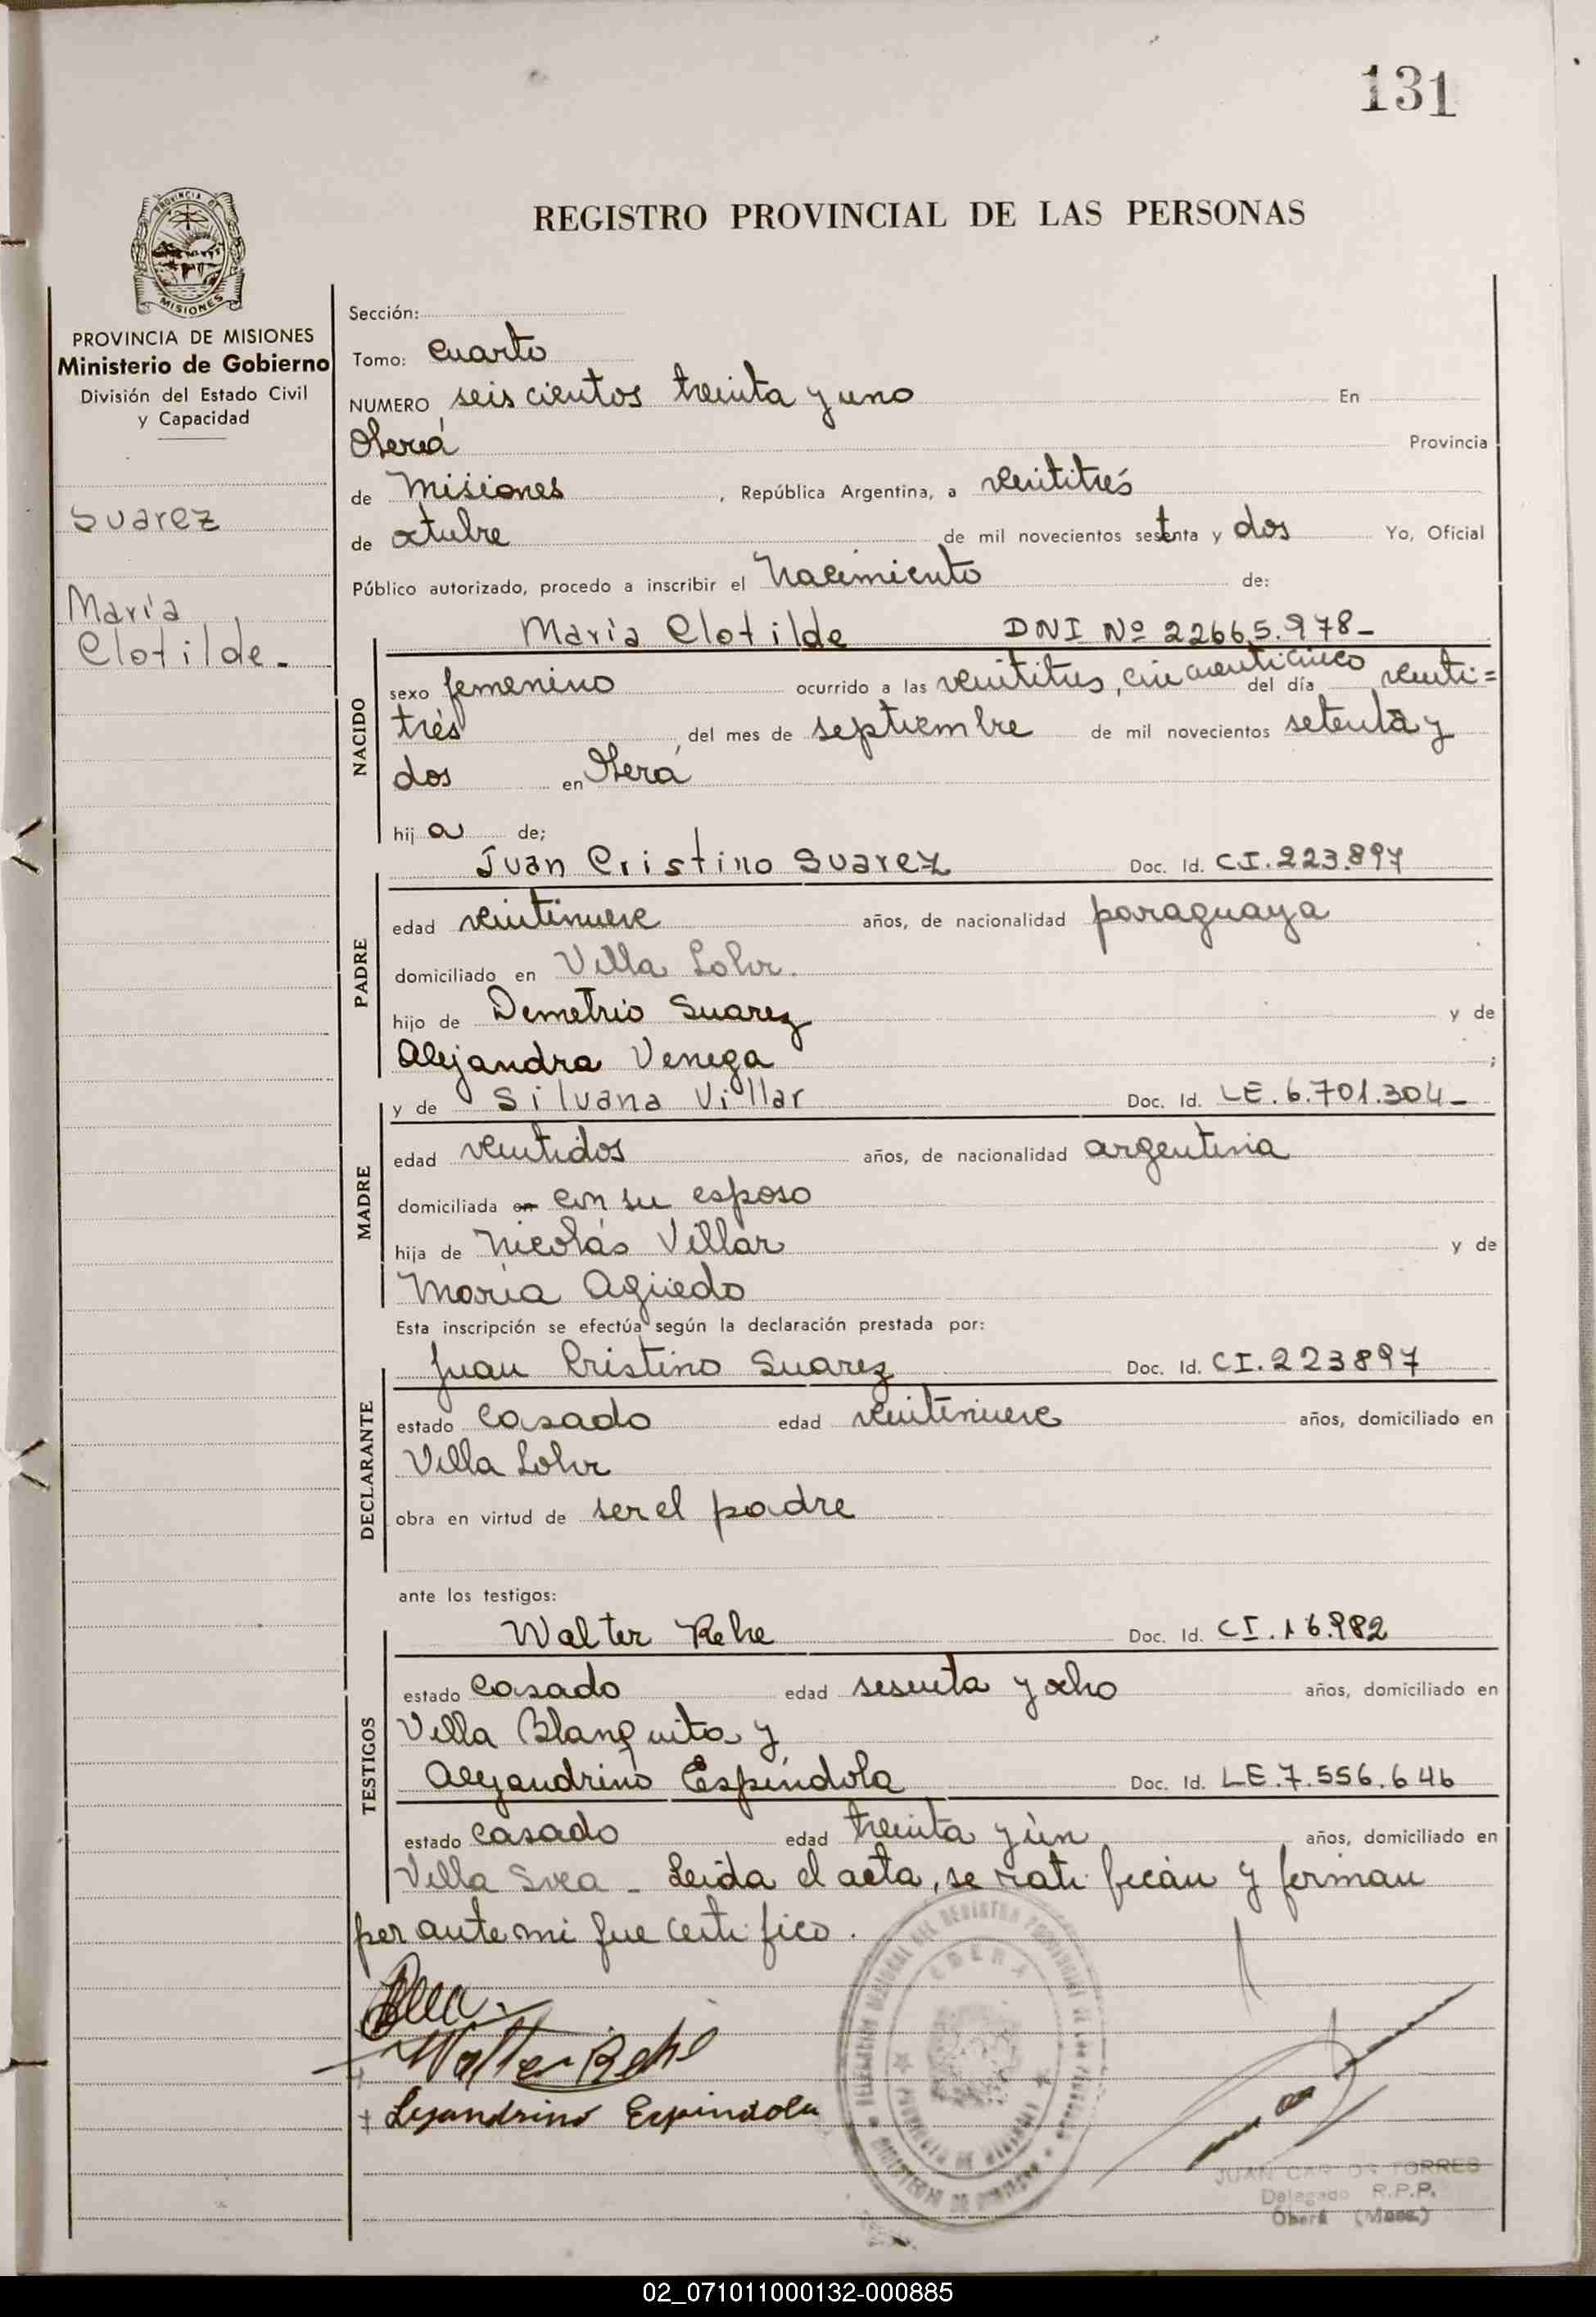 131
REGISTRO PROVINCIAL DE LAS PERSONAS
PROVINCIA DE
MISIONES
PROVINCIA DE MISIONES
Ministerio de Gobierno
División del Estado Civil
y Capacidad
Suarez
María
Clotilde.
Sección:
Tomo: Cuarto
NUMERO seis cientos treinta y uno En
Oberá Provincia
de Misiones, República Argentina, a veintitrés
de octubre de mil novecientos setenta y dos Yo, Oficial
Público autorizado, procedo a inscribir el Nacimiento de:
María Clotilde DNI Nº 22665.978-
NACIDO
sexo femenino ocurrido a las veintitres, cincuenticinco del día veinti=
trés del mes de septiembre de mil novecientos setenta y
dos en Oberá
hija de;
Juan Cristino Suarez Doc. Id. CI.223.897
PADRE
edad veintinueve años, de nacionalidad paraguaya
domiciliado en Villa Lohr.
hijo de Demetrio Suarez y de
Alejandra Venega;
y de Silvana Villar Doc. Id. LE.6.701.304-
MADRE
edad veintidos años, de nacionalidad argentina
domiciliada en con su esposo
hija de Nicolás Villar y de
María Agüedo
Esta inscripción se efectúa según la declaración prestada por:
Juan Cristino Suarez Doc. Id. CI.223897
DECLARANTE
estado Casado edad veintinueve años, domiciliado en
Villa Lohr
obra en virtud de ser el padre
ante los testigos:
Walter Rehe Doc. Id. CI.16.982
TESTIGOS
estado Casado edad sesenta y ocho años, domiciliado en
Villa Blanquita y
Alejandrino Espíndola Doc. Id. LE.7.556.646
estado Casado edad treinta y ún años, domiciliado en
Villa Svea - Leida el acta, se ratifican y firman
per ante mi que certifico.
Walter Rehe
Lejandrino Espindola
OBERA
PROVINCIA DE MISIONES
MINISTERIO DE GOBIERNO
JUAN CARLOS TORRES
Delegado R.P.P.
Oberá (Mnes.)
02_071011000132-000885